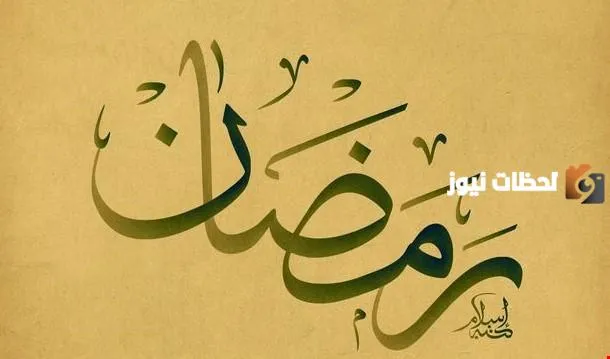 رمضان
لحظات نيوز
كتبه إسلام